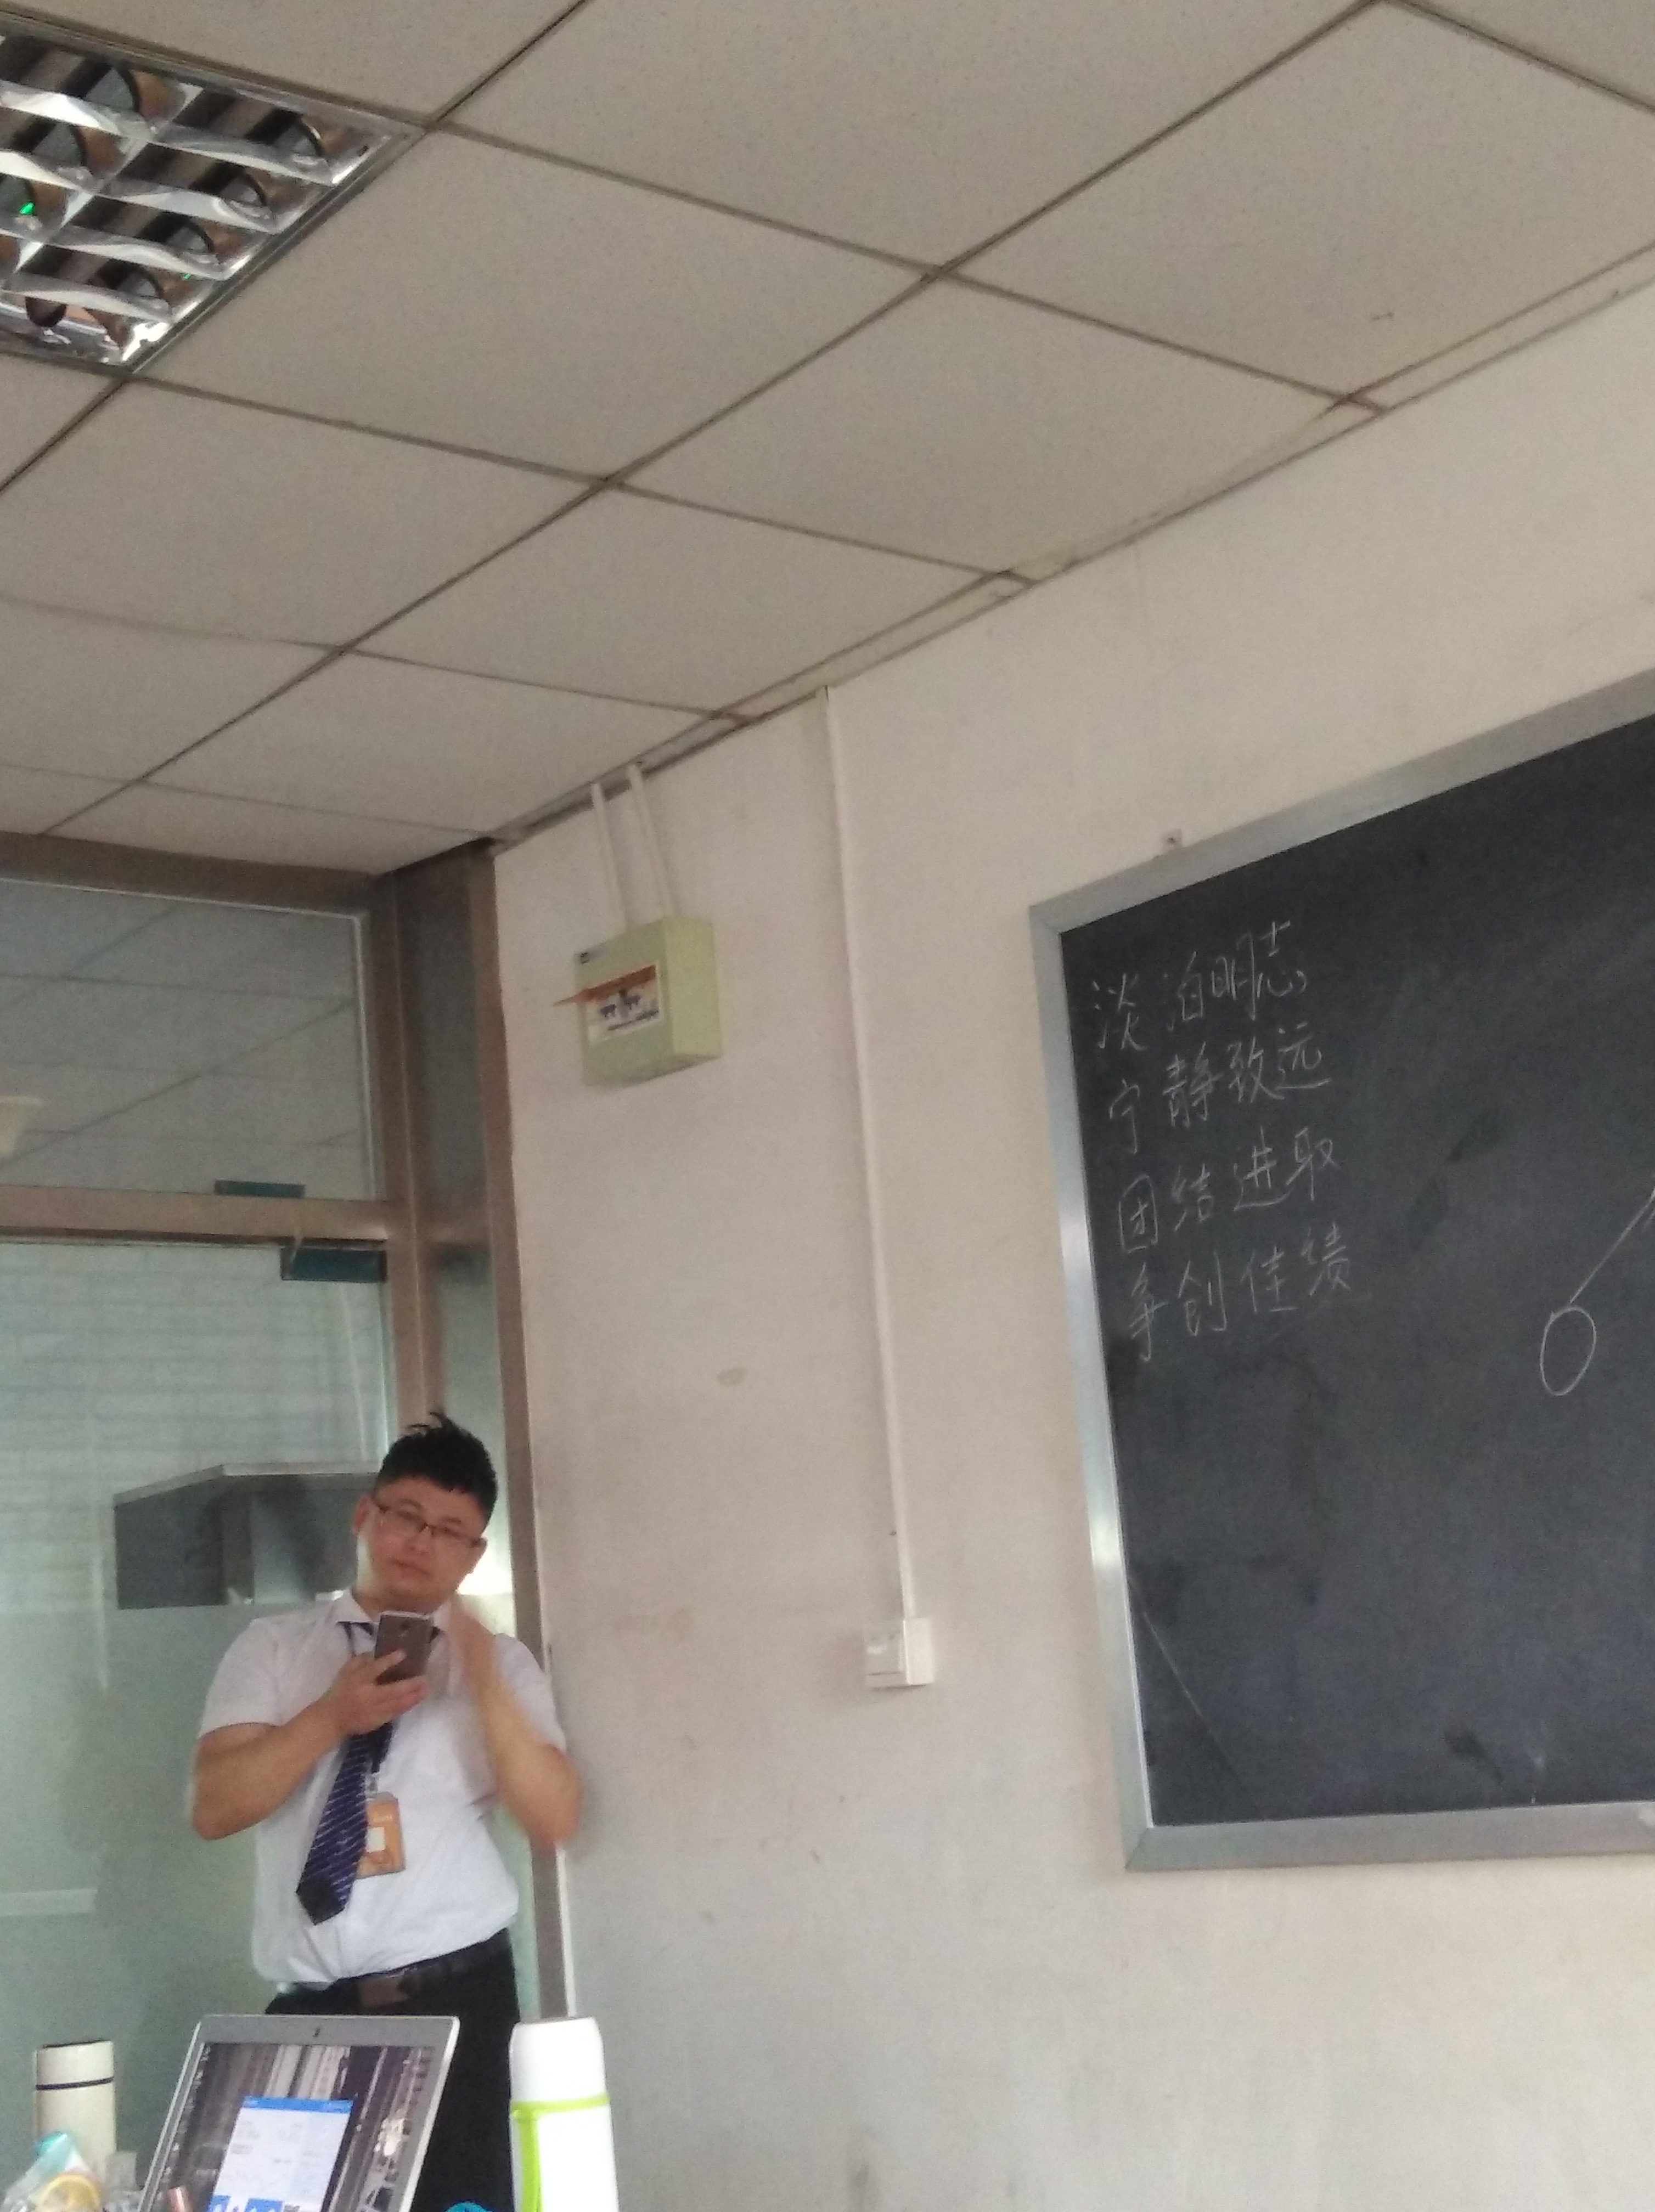 淡泊明志
宁静致远
团结进取
争创佳绩